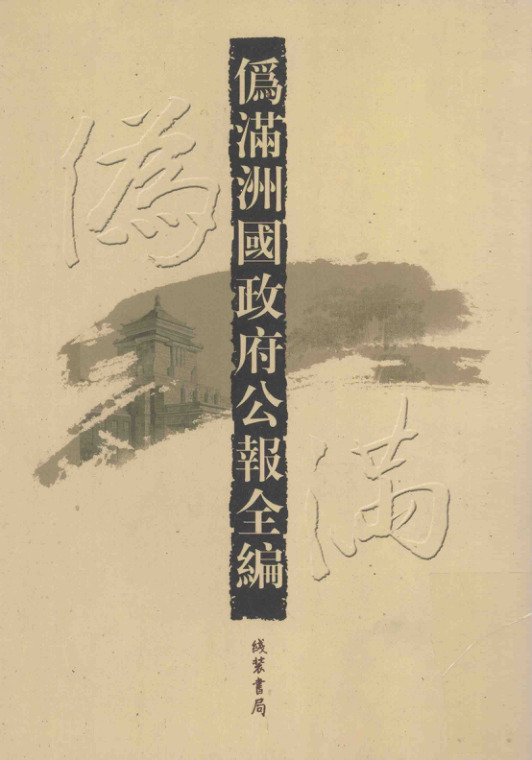 偽滿洲國政府公報全編
偽
滿
线装書局